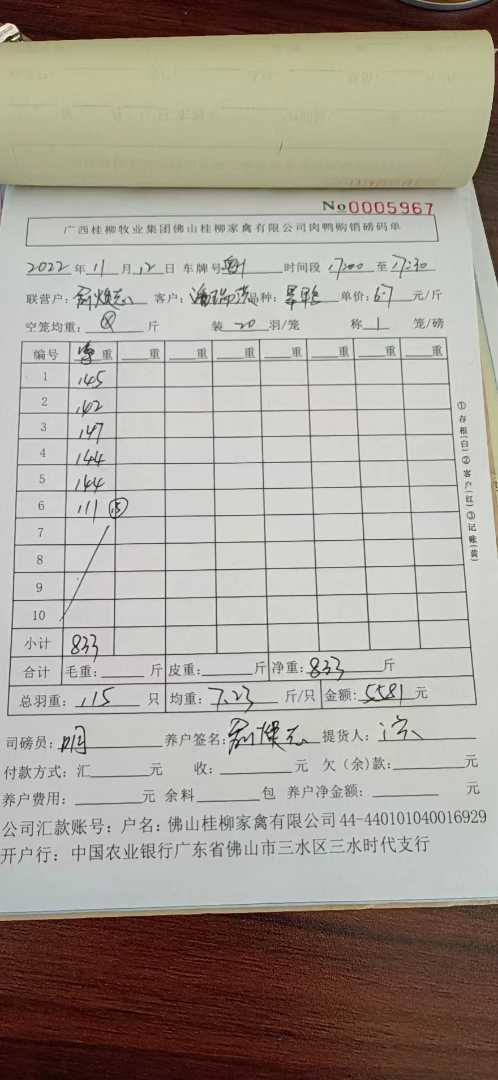 No0005967
广西桂柳牧业集团佛山桂柳家禽有限公司肉鸭购销磅码单
2022年11月12日 车牌号 时间段 17:00至17:30
联营户: 客户: 品种: 单价:6.7元/斤
空笼均重: 斤 装20羽/笼 称1笼/磅
编号 重 重 重 重 重 重 重
1 145
2 142
3 147
4 144
5 144
6 111 15
7
8
9
10
小计 833
合计 毛重: 斤 皮重: 斤 净重:833斤
总羽重:115只 均重:7.23斤/只 金额:5581元
司磅员: 养户签名: 提货人:
付款方式:汇 元 收: 元 欠(余)款: 元
养户费用: 元 余料 包 养户净金额: 元
公司汇款账号:户名:佛山桂柳家禽有限公司44-440101040016929
开户行:中国农业银行广东省佛山市三水区三水时代支行
①存根(白)②客户(红)③记账(黄)